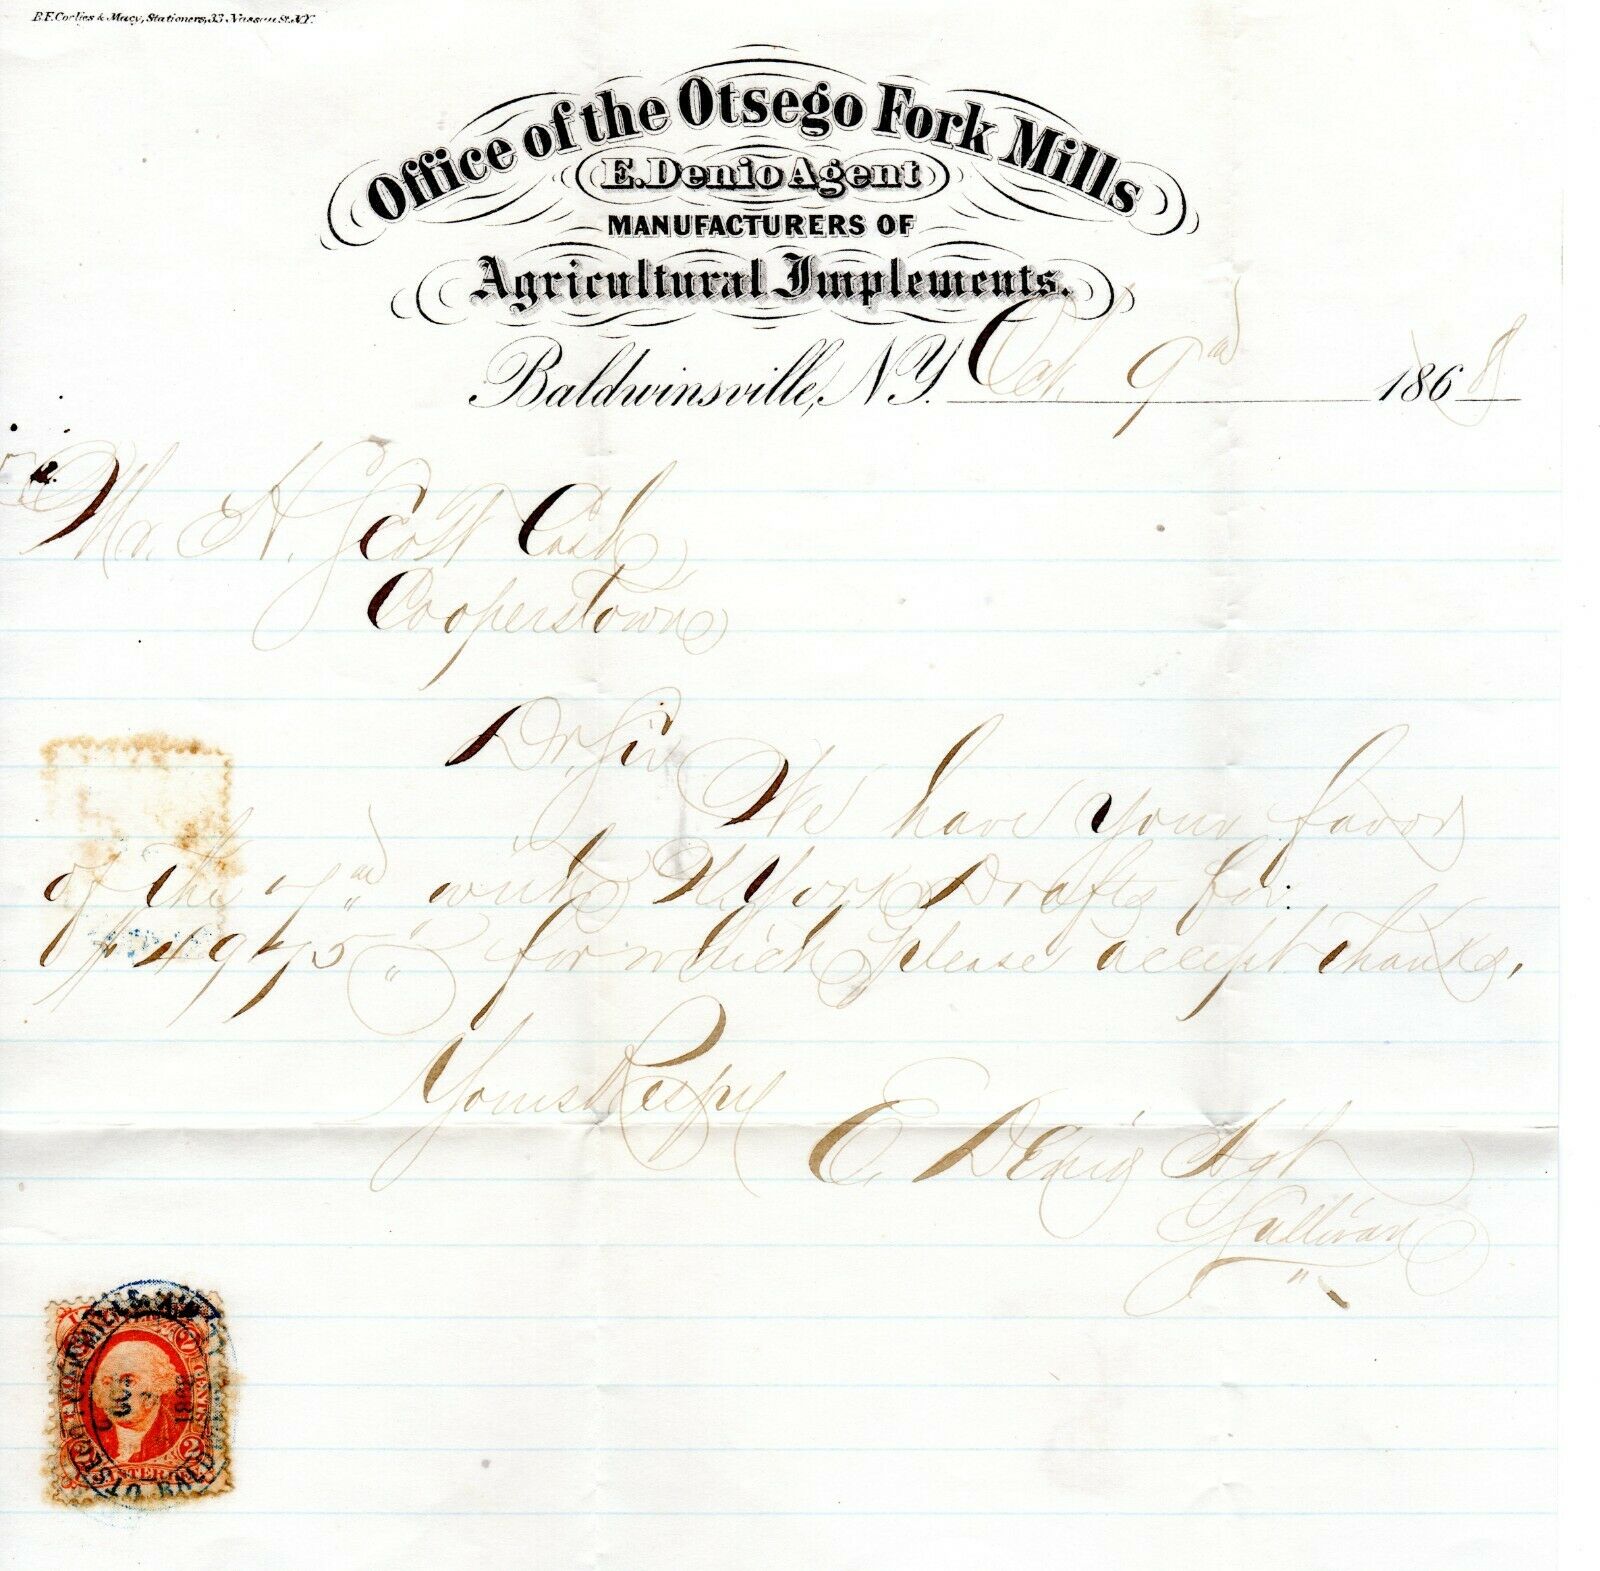 B.F. Corlies & Macy, Stationers, 33 Nassau St. N.Y.
Office of the Otsego Fork Mills
E. Denio Agent
MANUFACTURERS OF
Agricultural Implements.
Baldwinsville, N.Y. Oct. 9 1868
Mr. H. Scott Cash
Cooperstown
Dr. Sir We have your favor
of the 7 with N. York Drafts for
for which please accept thanks,
Yours Respy
E. Denio Agt
Sullivan
OTSEGO FORK MILLS
OCT
1868
BALD
2
CENTS